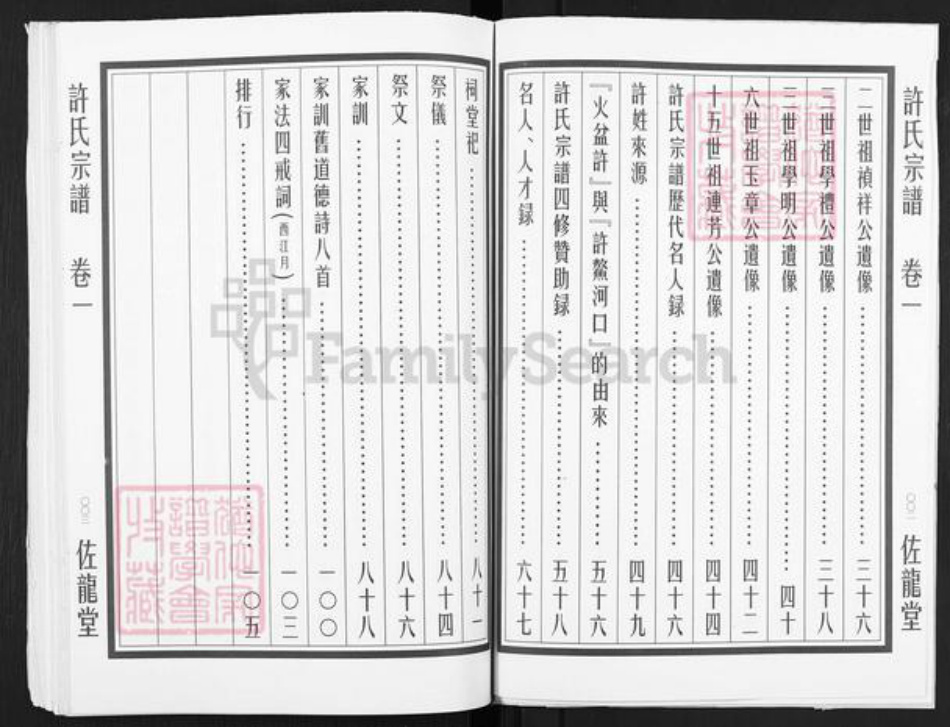 許氏宗譜 卷一
〇〇二 佐龍堂
二世祖禎祥公遺像 三十六
三世祖學禮公遺像 三十八
三世祖學明公遺像 四十
六世祖玉章公遺像 四十二
十五世祖連芳公遺像 四十四
許氏宗譜歷代名人録 四十六
許姓來源 四十九
『火盆許』與『許鰲河口』的由來 五十六
許氏宗譜四修贊助録 五十八
名人、人才録 六十七
祠堂祀 八十一
祭儀 八十四
祭文 八十六
家訓 八十八
家訓舊道德詩八首 一〇〇
家法四戒詞(西江月) 一〇三
排行 一〇五
許氏宗譜 卷一
〇〇三 佐龍堂
FamilySearch